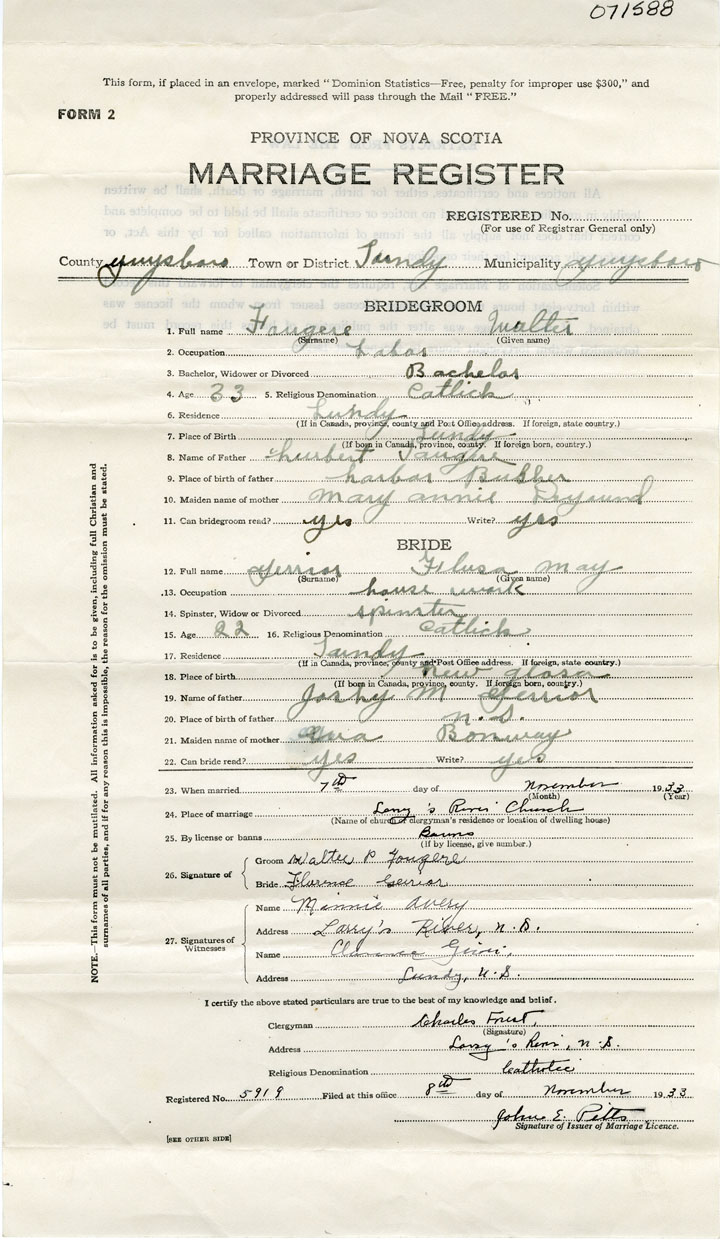 071588
This form, if placed in an envelope, marked "Dominion Statistics—Free, penalty for improper use $300," and
properly addressed will pass through the Mail "FREE."
FORM 2
PROVINCE OF NOVA SCOTIA
MARRIAGE REGISTER
REGISTERED No.
(For use of Registrar General only)
County guysboro Town or District Lundy Municipality guysboro
BRIDEGROOM
1. Full name Faugere Walter
(Surname) (Given name)
2. Occupation Labor
3. Bachelor, Widower or Divorced Bachelor
4. Age 33 5. Religious Denomination Catlick
6. Residence Lundy
(If in Canada, province, county and Post Office address. If foreign, state country.)
7. Place of Birth Lundy
(If born in Canada, province, county. If foreign born, country.)
8. Name of Father hurbert Faugere
9. Place of birth of father harbor Busher
10. Maiden name of mother Mary annie
11. Can bridegroom read? yes Write? yes
BRIDE
12. Full name gerrior may
(Surname) (Given name)
13. Occupation house work
14. Spinster, Widow or Divorced spinster
15. Age 22 16. Religious Denomination Catlick
17. Residence Lundy
(If in Canada, province, county and Post Office address. If foreign, state country.)
18. Place of birth new
(If born in Canada, province, county. If foreign born, country.)
19. Name of father M gerrior
20. Place of birth of father n.S.
21. Maiden name of mother
22. Can bride read? yes Write? yes
23. When married 7th day of November 1933
(Month) (Year)
24. Place of marriage Larry's River Church
(Name of church or clergyman's residence or location of dwelling house)
25. By license or banns Banns
(If by license, give number.)
26. Signature of
Groom Walter P Fougere
Bride Florence Gerrior
27. Signatures of Witnesses
Name Minnie Avery
Address Larry's River, N.S.
Name Clarence
Address Lundy, N.S.
I certify the above stated particulars are true to the best of my knowledge and belief.
Clergyman Charles Forest,
(Signature)
Address Larry's River, N.S.
Religious Denomination Catholic
Registered No. 5919 Filed at this office 8th day of November 1933
John E. Pitts
Signature of Issuer of Marriage Licence.
[SEE OTHER SIDE]
NOTE.—This form must not be mutilated. All information asked for is to be given, including full Christian and
surnames of all parties, and if for any reason this is impossible, the reason for the omission must be stated.